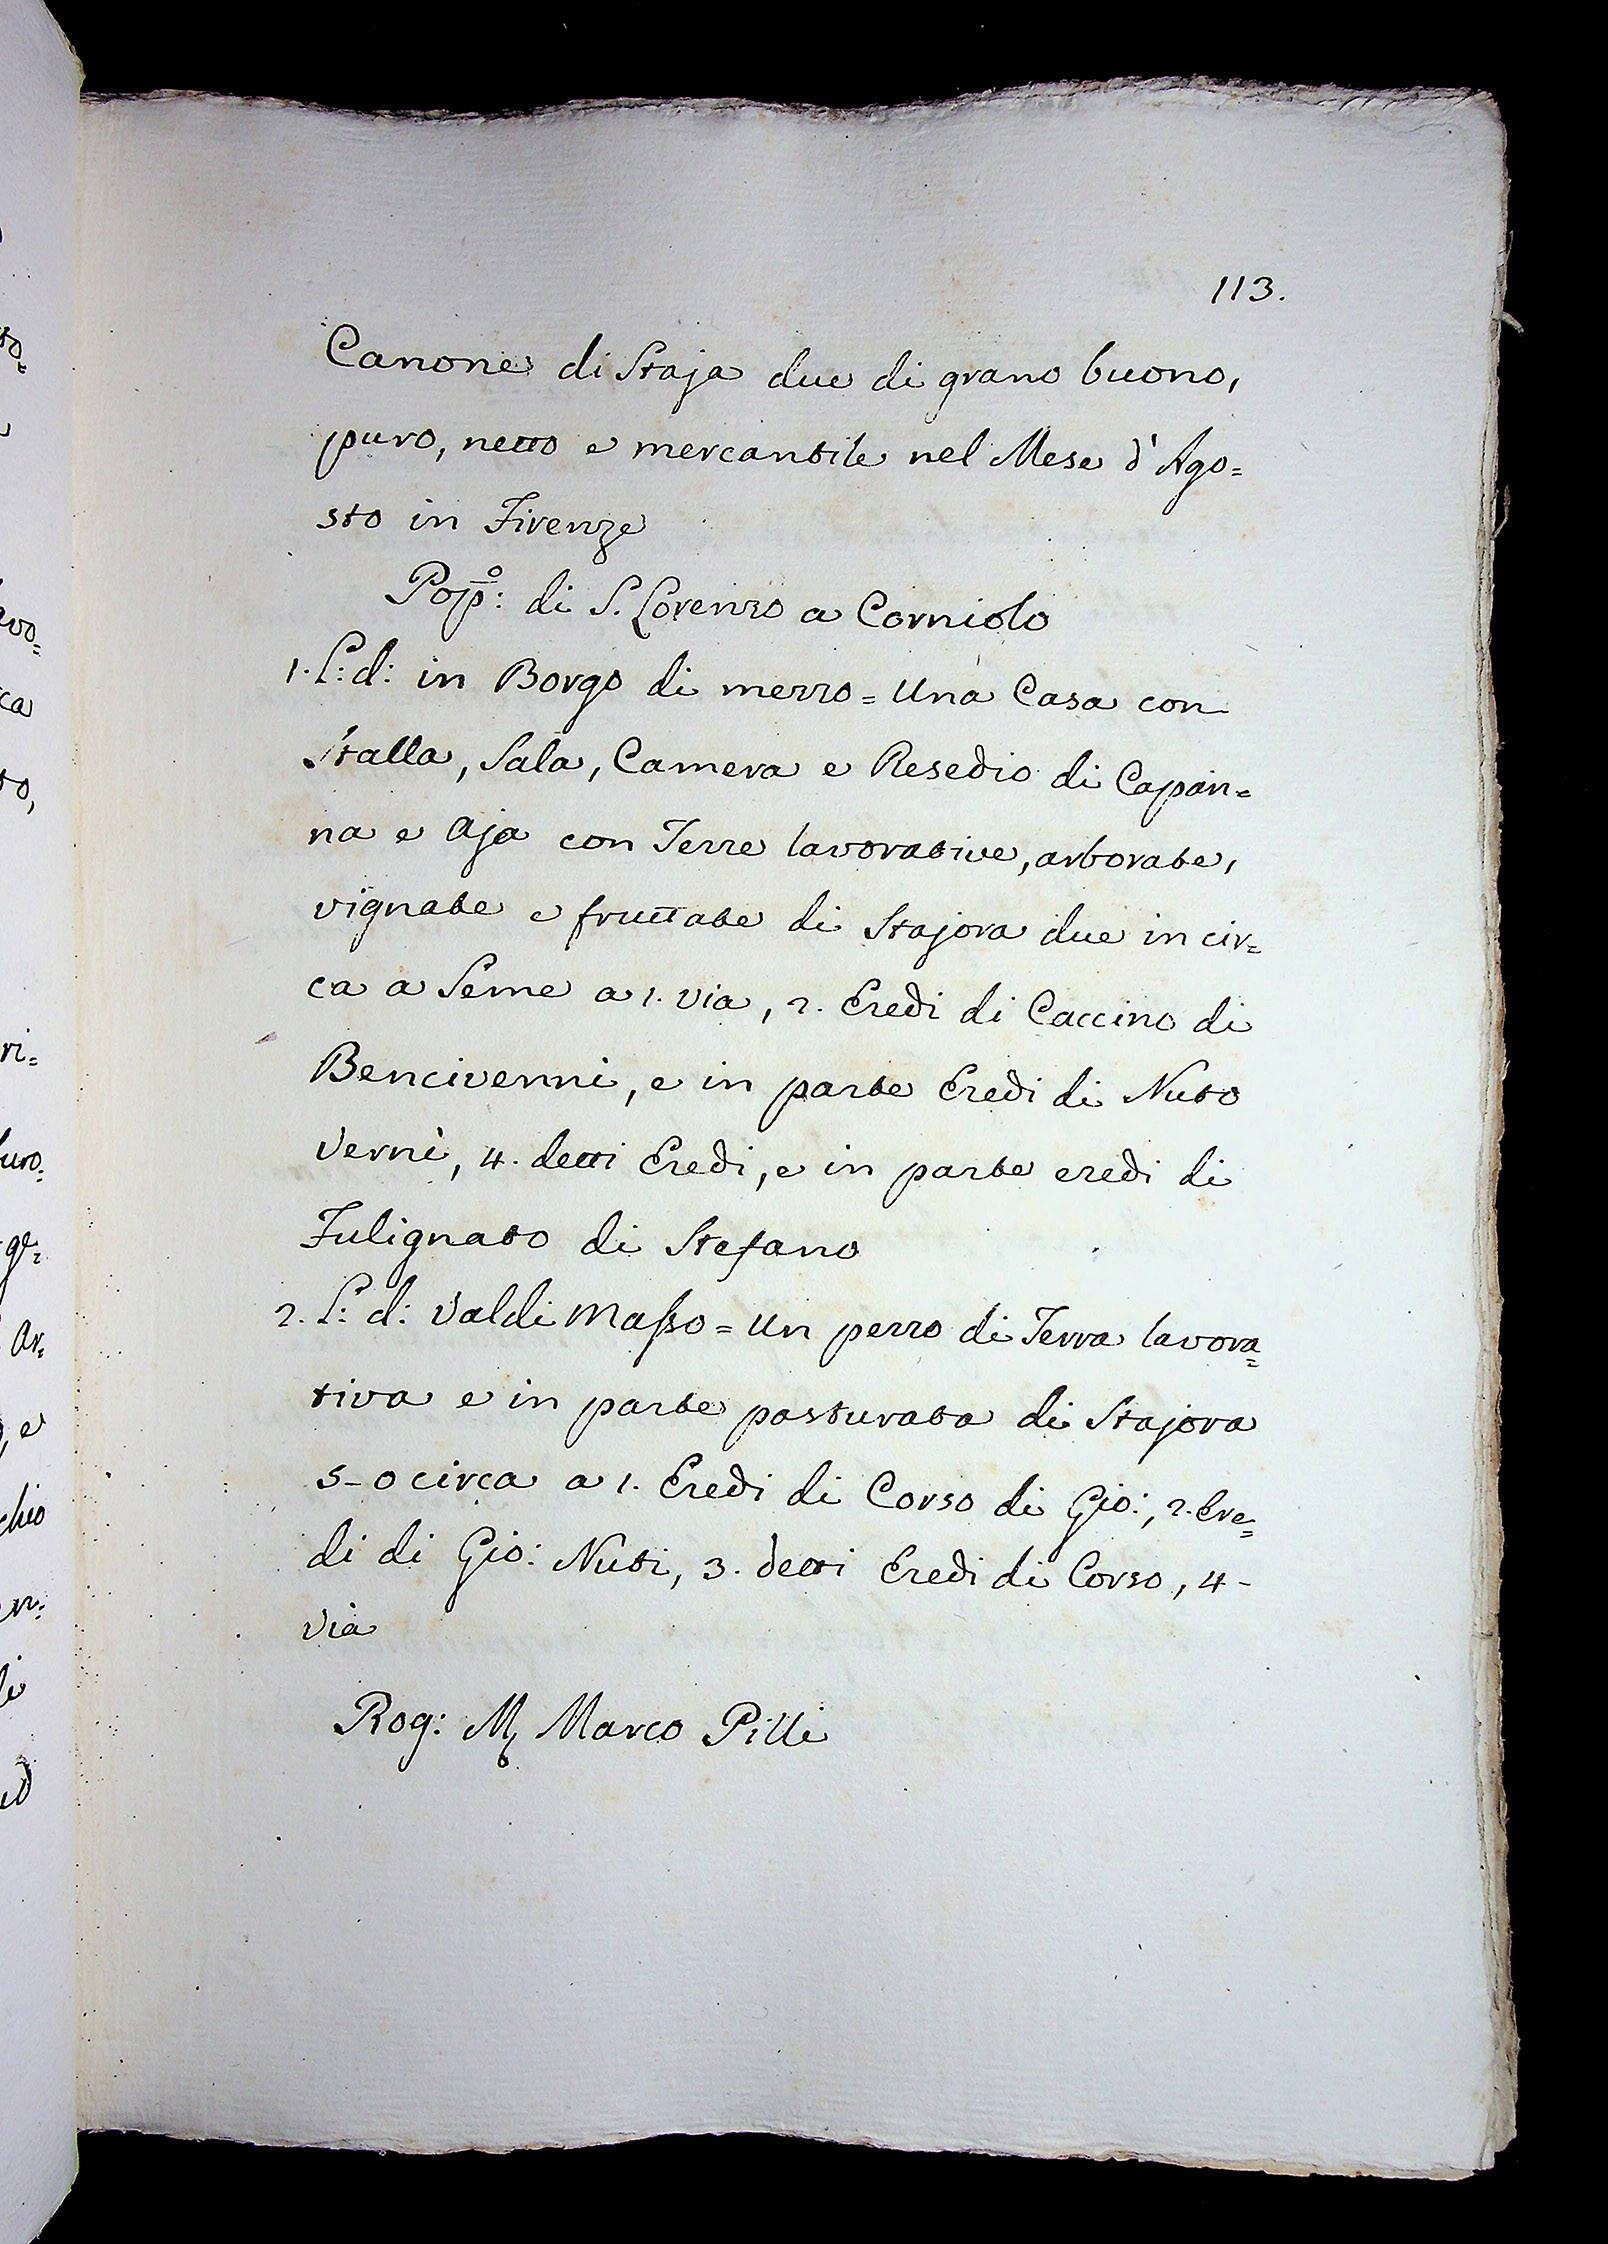 113.
Canone di Staja due di grano buono,
puro, netto e mercantile nel Mese d'Ago=
sto in Firenze
Pop:º di S. Lorenzo a Corniolo
1. L: d: in Borgo di mezzo = Una Casa con
Stalla, Sala, Camera e Resedio di Capan=
na e Aja con Terre lavorative, arborate,
vignate e fruttate di Stajora due in cir=
ca a Seme a 1. via, 2. Eredi di Caccino di
Bencivenni, e in parte Eredi di Nuto
Verni, 4. detti Eredi, e in parte eredi di
Fulignato di Stefano
2. L: d: Valdi Masso = Un pezzo di Terra lavora=
tiva e in parte pasturata di Stajora
5-0 circa a 1. Eredi di Corso di Gio:, 2. Ere=
di di Gio: Nuti, 3. detti Eredi di Corso, 4-
via
Rog: M Marco Pilli